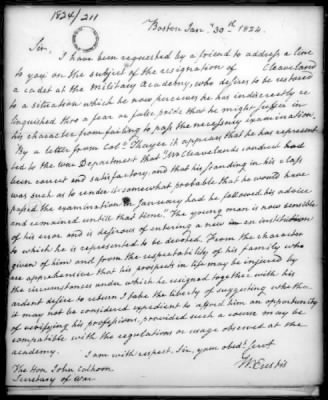 1824/211
Boston Jan.y 30th 1824.
Sir,
I have been requested by a friend to address a line
to you on the subject of the resignation of Cleaveland
a cadet at the Military Academy, who desires to be restored
to a situation which he now perceives he has indiscreetly re
linquished thro' a fear or false pride that he might suffer in
his character from failing to pass the necessary examination.
By a letter from Colo. Thayer it appears that he has represen
ted to the War Department that Mr Cleavelands conduct had
been correct and satisfactory, and that his standing in his class
was such as to render it somewhat probable that he would have
passed the examination in January had he followed his advice
and remained untill that time. The young man is now sensible
of his error and is desirous of entering a new an institution
to which he is represented to be devoted. From the character
given of him and from the respectability of his family who
are apprehensive that his prospects in life may be injured by
the circumstances under which he resigned together with his
ardent desire to return I take the liberty of suggesting whether
it may not be considered expedient to afford him an opportunity
of verifying his professions, provided such a course may be
compatible with the regulations or usage observed at the
academy.
I am with respect, Sir, your obedt. servt
W. Eustis
The Hon. John Calhoun
Secretary of War